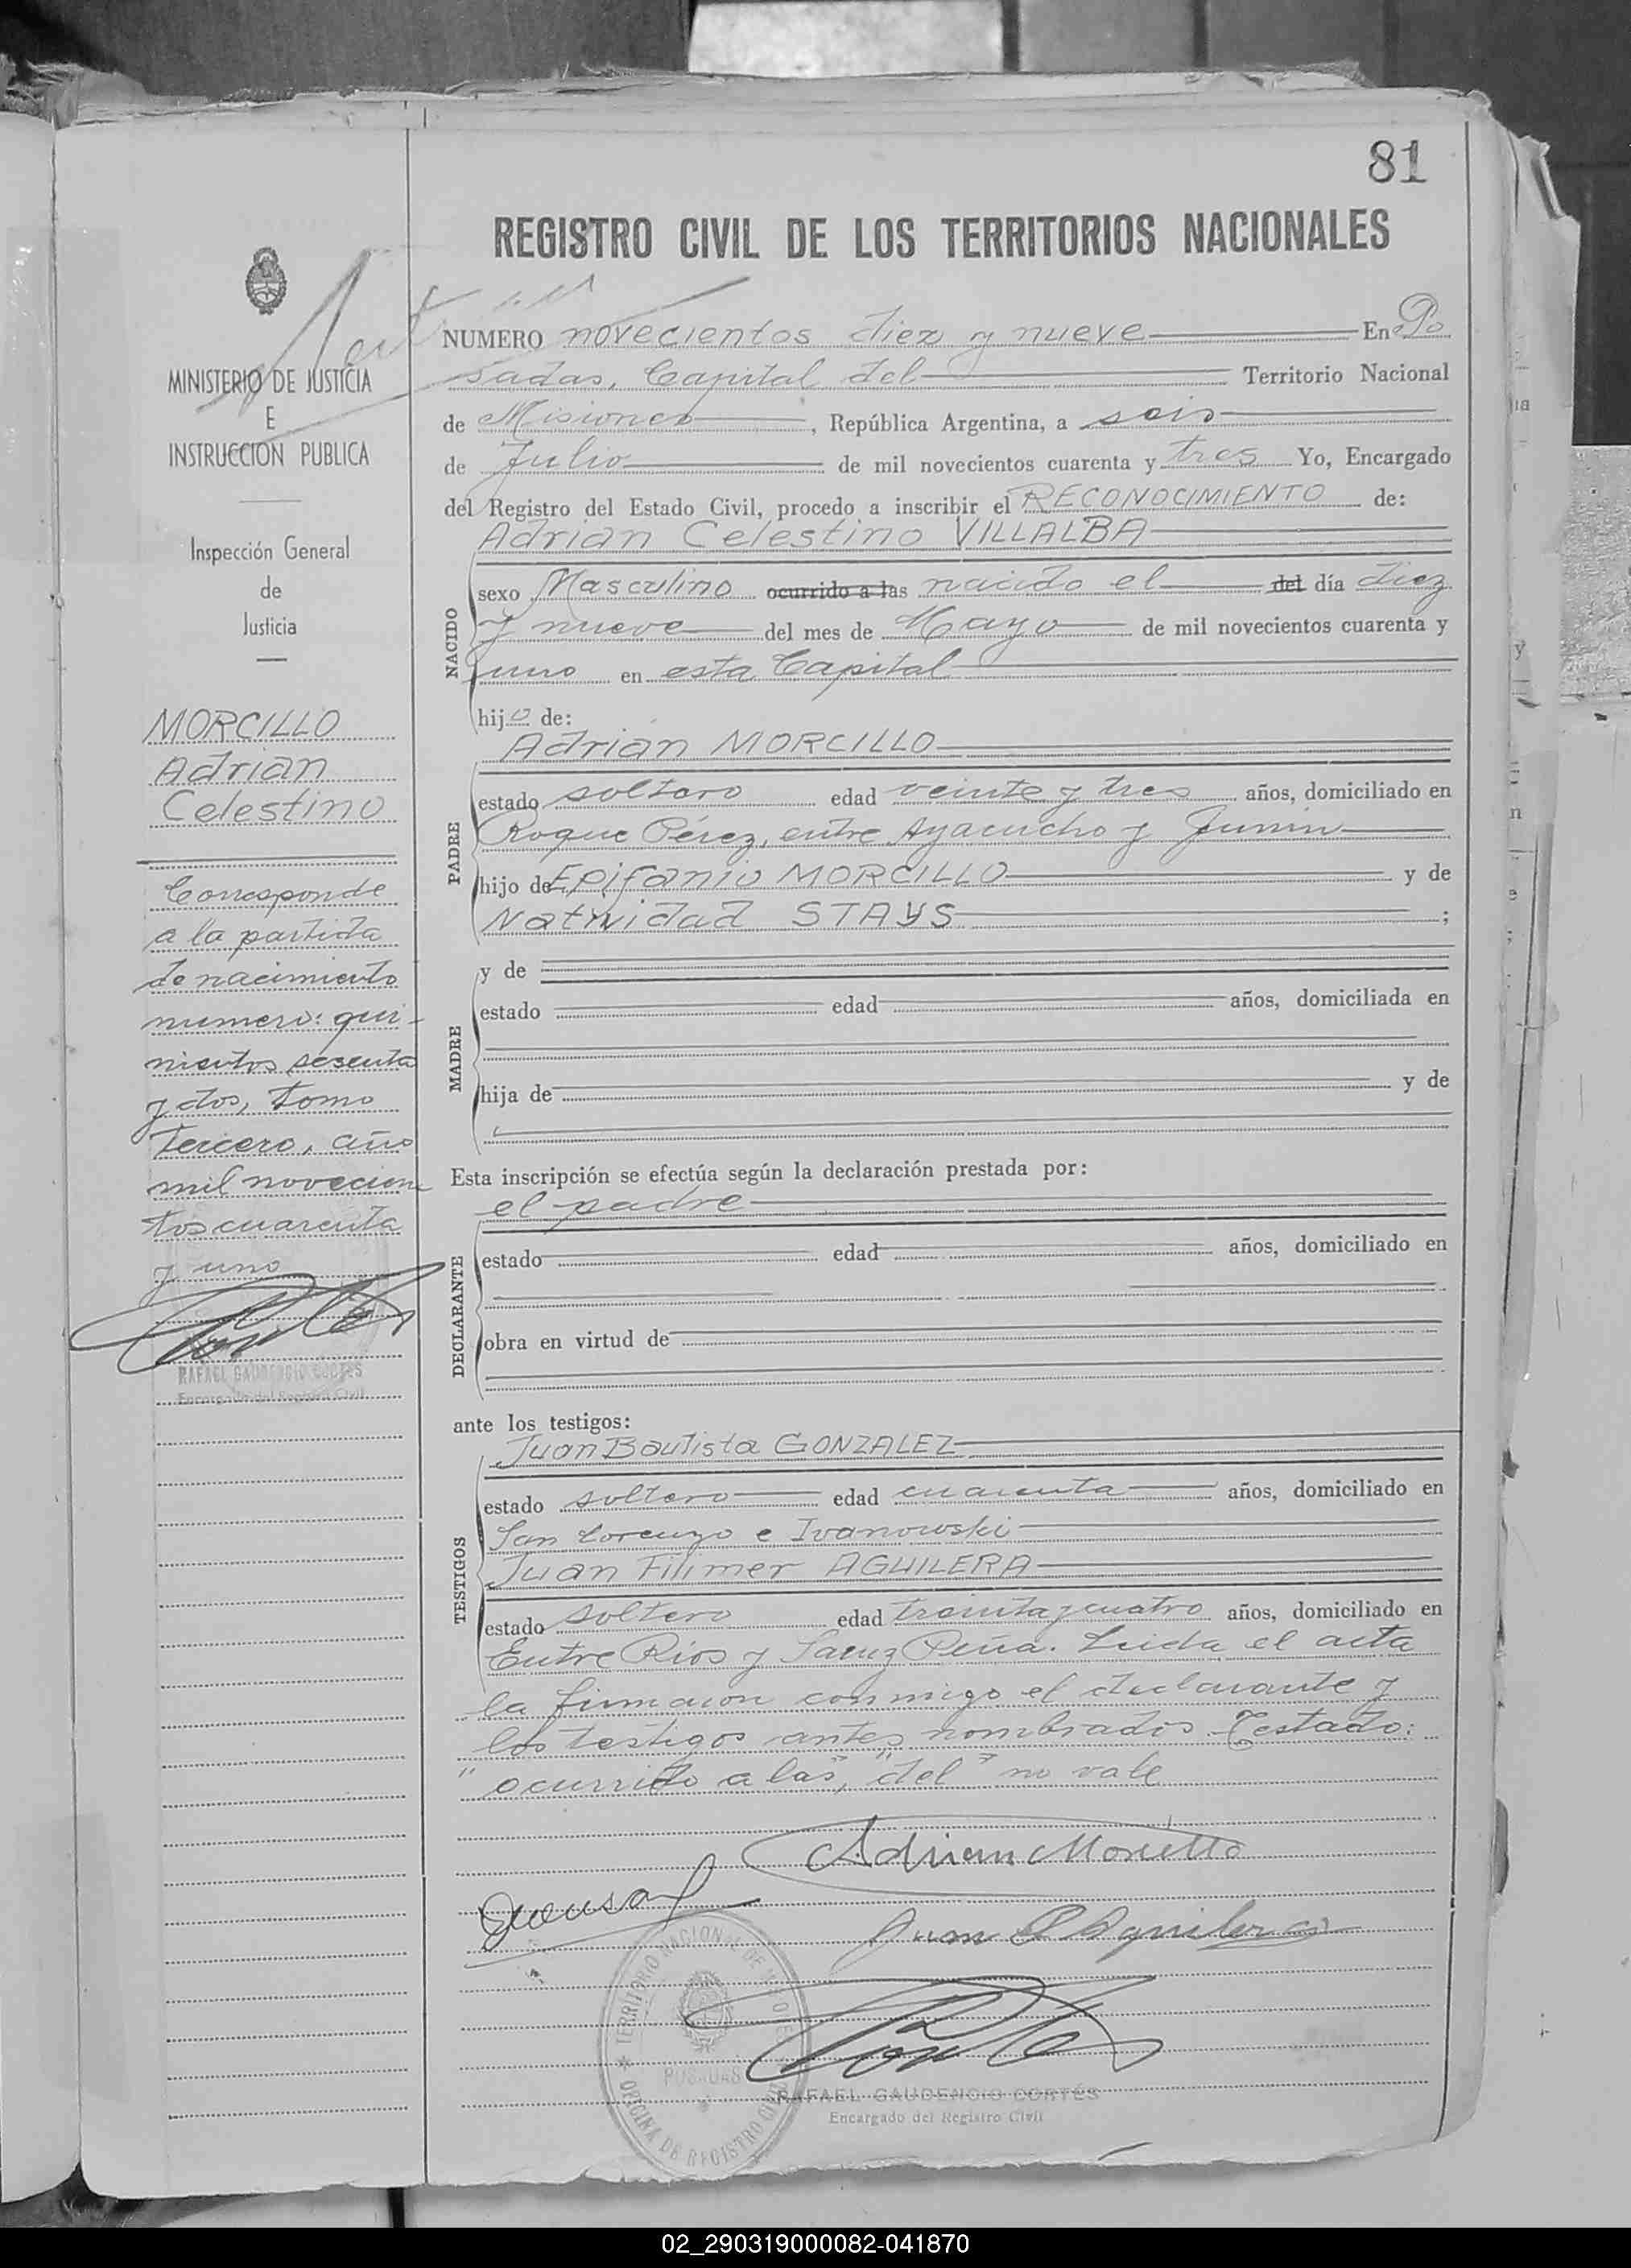 81
REGISTRO CIVIL DE LOS TERRITORIOS NACIONALES
MINISTERIO DE JUSTICIA
E
INSTRUCCION PUBLICA
Inspección General
de
Justicia
MORCILLO
Adrian
Celestino
Corresponde
a la partida
de nacimiento
numero: qui-
nientos sesenta
y dos, tomo
tercero, año
mil novecien
tos cuarenta
y uno
RAFAEL GAUDENCIO CORTÉS
Encargado del Registro Civil
NUMERO novecientos diez y nueve En Po
sadas, Capital del Territorio Nacional
de Misiones, República Argentina, a seis
de Julio de mil novecientos cuarenta y tres Yo, Encargado
del Registro del Estado Civil, procedo a inscribir el RECONOCIMIENTO de:
Adrian Celestino VILLALBA
NACIDO
sexo Masculino ocurrido a las nacido el del día diez
y nueve del mes de Mayo de mil novecientos cuarenta y
uno en esta Capital
hijo de:
Adrian MORCILLO
PADRE
estado soltero edad veinte y tres años, domiciliado en
Roque Pérez, entre Ayacucho y Junin
hijo de Epifanio MORCILLO y de
Natividad STAYS;
MADRE
y de
estado edad años, domiciliada en
hija de y de
Esta inscripción se efectúa según la declaración prestada por:
el padre
DECLARANTE
estado edad años, domiciliado en
obra en virtud de
ante los testigos:
Juan Bautista GONZALEZ
TESTIGOS
estado soltero edad cuarenta años, domiciliado en
San Lorenzo e Ivanowski
Juan Filimer AGUILERA
estado soltero edad treinta y cuatro años, domiciliado en
Entre Ríos y Saenz Peña. Leida el acta
la firmaron conmigo el declarante y
los testigos antes nombrados. Testado:
"ocurrido a las", "del" no vale
Adrian Morcillo
Juan F Aguilera
Cortés
TERRITORIO NACIONAL DE MISIONES
POSADAS
OFICINA DE REGISTRO CIVIL
RAFAEL GAUDENCIO CORTÉS
Encargado del Registro Civil
02_290319000082-041870